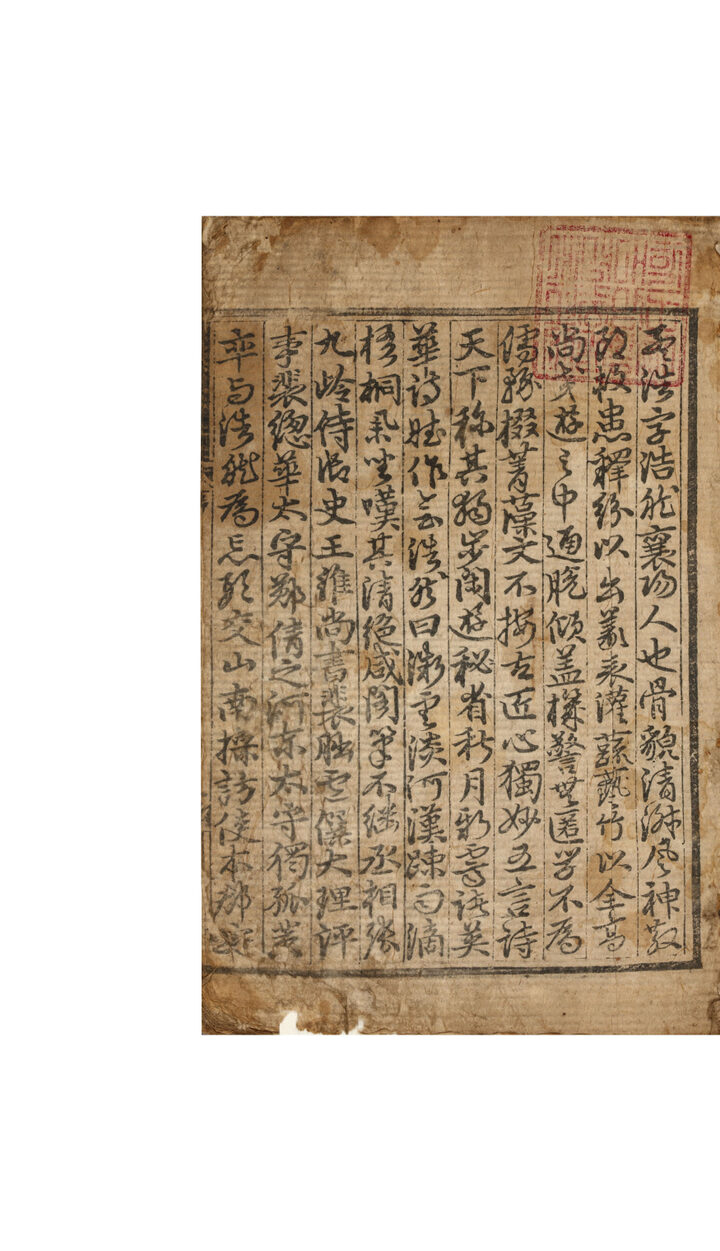 孟浩字浩然襄陽人也骨貌清淑風神散
朗救患釋紛以出義表灌蔬藝竹以全高
尚交遊之中通脫傾盖機警無匿学不為
儒務掇菁藻文不按古匠心獨妙五言詩
天下称其獨步閑遊秘省秋月新霽諸英
華詩賦作会浩然曰微雲淡河漢疎雨滴
梧桐舉坐嘆其清絶咸閣筆不継丞相張
九岭侍御史王維尚書裴朏盧僎大理評
事裴緫華太守鄭倩之河東太守獨孤策
率与浩然為忘形交山南採訪使本郡